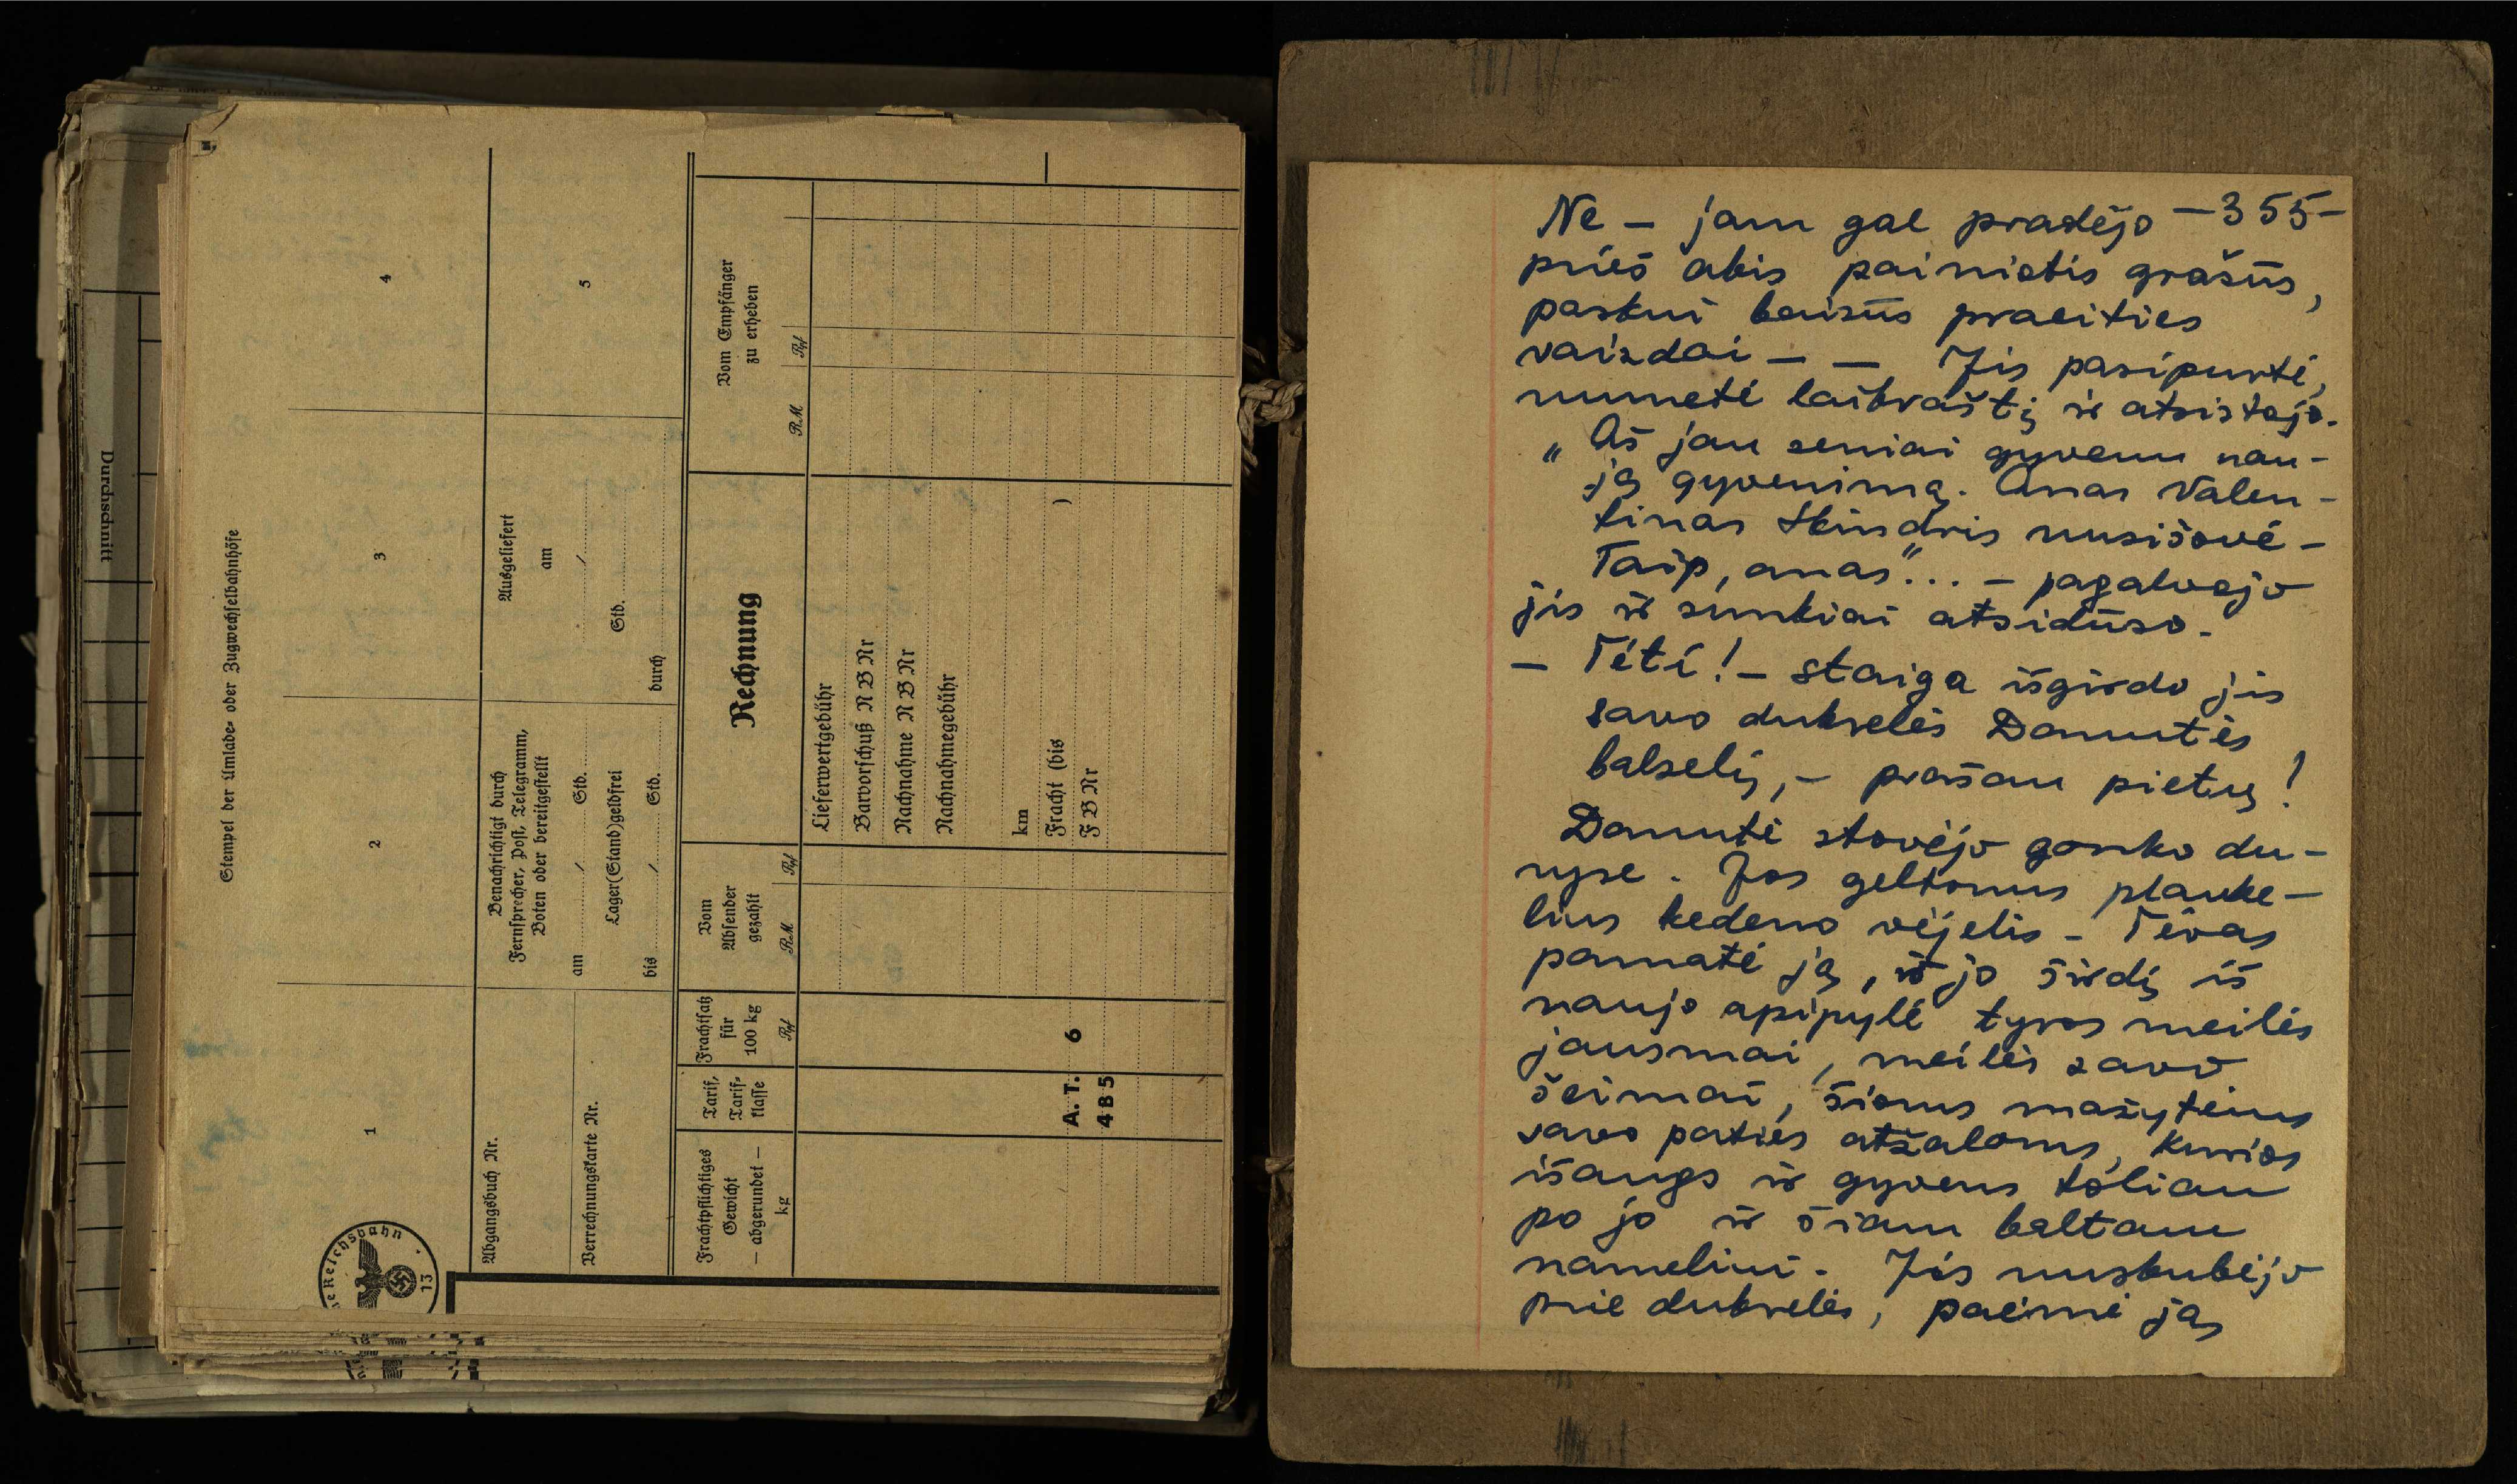 Durchschnitt
Stempel der Umlade- oder Zugwechselbahnhöfe
1
2
3
4
5
Abgangsbuch Nr.
Verrechnungskarte Nr.
Benachrichtigt durch
Fernsprecher, Post, Telegramm,
Boten oder bereitgestellt
am / Std.
Lager(Stand)geldfrei
bis / Std.
Ausgeliefert
am
/
Std.
durch
Frachtpflichtiges
Gewicht
— abgerundet —
kg
Tarif,
Tarif-
klasse
Frachtsatz
für
100 kg
Rpf
Vom
Absender
gezahlt
RM Rpf
Rechnung
Vom Empfänger
zu erheben
RM Rpf
Lieferwertgebühr
Barvorschuß N B Nr
Nachnahme N B Nr
Nachnahmegebühr
km
Fracht (bis )
F B Nr
A. T. 6
4 B 5
e Reichsbahn
13
Ne – jam gal pradėjo –355–
prieš akis painiotis gražūs,
paskui baisūs praeities
vaizdai – – Jis pasipurtė,
numetė laikraštį ir atsistojo.
„Aš jau seniai gyvenu nau-
ją gyvenimą. Anas Valen-
tinas Skindris nusišovė –
Taip, anas“... – pagalvojo
jis ir sunkiai atsiduso.
– Tėti! – staiga išgirdo jis
savo dukrelės Danutės
balselį, – prašau pietų!
Danutė stovėjo gonko du-
ryse. Jos geltonus plauke-
lius kedeno vėjelis – Tėvas
pamatė ją, ir jo širdį iš
naujo apipylė tyros meilės
jausmai, meilės savo
šeimai, šioms mažytėms
savo paties atžaloms, kurios
išaugs ir gyvens toliau
po jo ir šiam baltam
nameliui. Jis nuskubėjo
prie dukrelės, paėmė ją